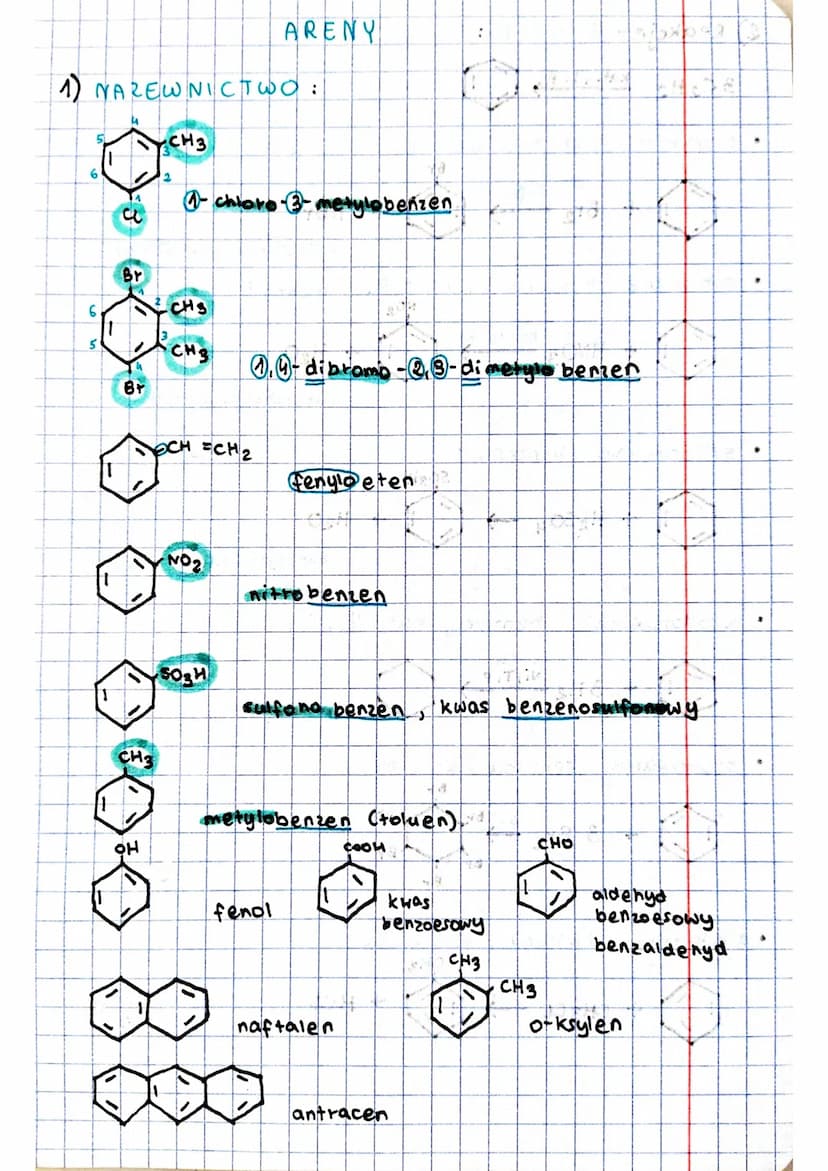 ARENY
1) NAZEWNICTWO:
4
5 CH3
3
6 2
1
Cl
1-chloro-3-metylobenzen
Br
1
6 2 CH3
5 3 CH3
4
Br
1,4-dibromo-2,3-dimetylobenzen
CH=CH2
fenyloeten
NO2
nitrobenzen
SO3H
sulfonobenzen, kwas benzenosulfonowy
CH3
metylobenzen (toluen)
OH COOH CHO
fenol kwas benzoesowy aldehyd benzoesowy
benzaldehyd
CH3
CH3
naftalen o-ksylen
antracen